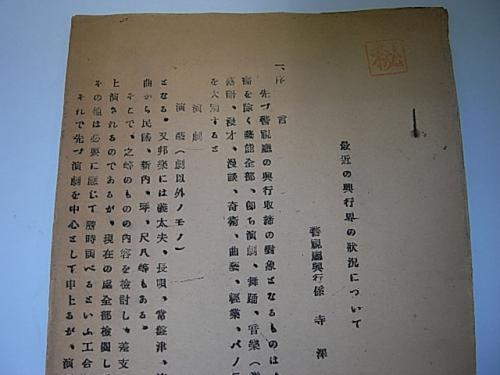 最近の興行界の狀況について
警視廳興行係 寺澤
一、序言
先づ警視廳の興行取締の對象となるものは
を除く藝能全部、卽ち演劇、舞踊、音樂（
落語、漫才、漫談、奇術、曲藝、輕業、パノ
を大別すると
演劇
演藝（劇以外ノモノ）
となる。又邦樂には義太夫、長唄、常盤津、
曲から民謠、新內、琴、尺八等もある。
そこで、之等のものの內容を檢討し、差支
上演されるのであるが、現在の處全部檢閱し
その他は必要に應じて臨時調べるといふ工合
それで先づ演劇を中心として申上るが、演